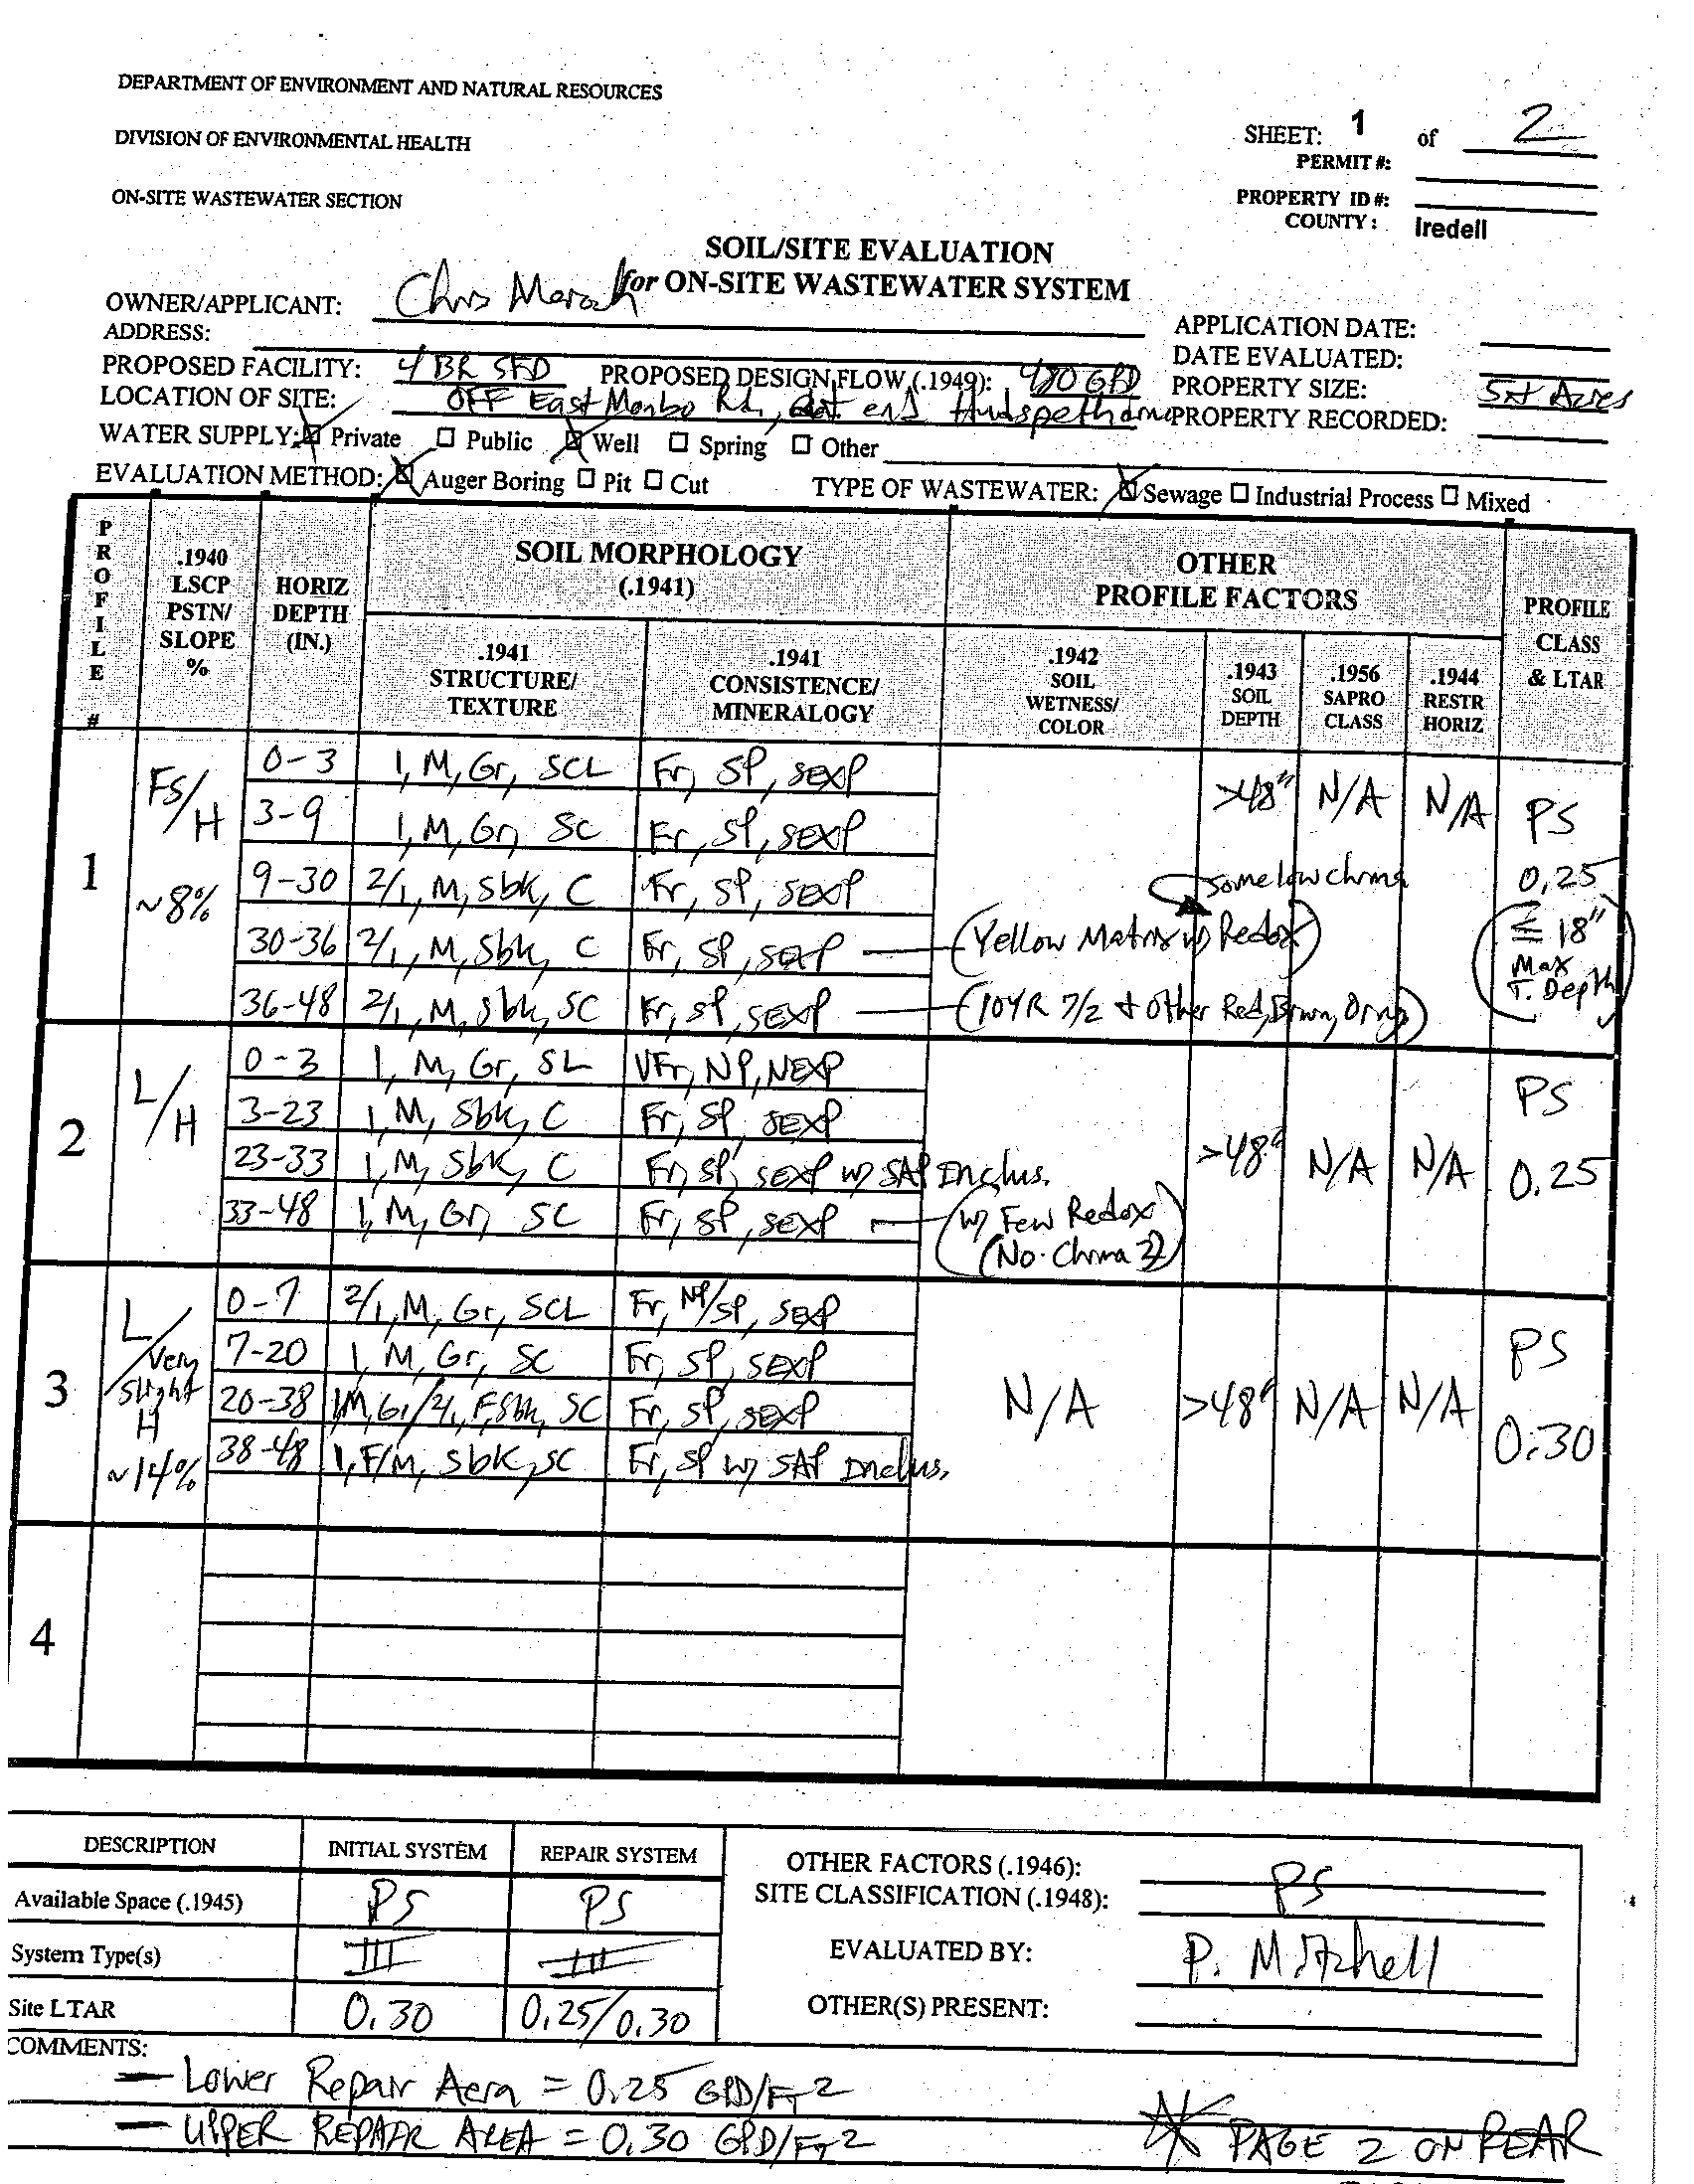 DEPARTMENT OF ENVIRONMENT AND NATURAL RESOURCES
DIVISION OF ENVIRONMENTAL HEALTH
ON-SITE WASTEWATER SECTION
SHEET: 1 of 2
PERMIT #:
PROPERTY ID #:
COUNTY: Iredell
SOIL/SITE EVALUATION
for ON-SITE WASTEWATER SYSTEM
OWNER/APPLICANT: Chris
ADDRESS:
APPLICATION DATE:
DATE EVALUATED:
PROPOSED FACILITY: 4 BR SFD PROPOSED DESIGN FLOW (.1949): 480 GPD PROPERTY SIZE: 5± Acres
LOCATION OF SITE: OFF East Monbo Rd, end PROPERTY RECORDED:
WATER SUPPLY: ☒ Private ☐ Public ☒ Well ☐ Spring ☐ Other
EVALUATION METHOD: ☒ Auger Boring ☐ Pit ☐ Cut TYPE OF WASTEWATER: ☒ Sewage ☐ Industrial Process ☐ Mixed
PROFILE #
.1940 LSCP PSTN/ SLOPE %
HORIZ DEPTH (IN.)
SOIL MORPHOLOGY (.1941)
.1941 STRUCTURE/ TEXTURE
.1941 CONSISTENCE/ MINERALOGY
OTHER PROFILE FACTORS
.1942 SOIL WETNESS/ COLOR
.1943 SOIL DEPTH
.1956 SAPRO CLASS
.1944 RESTR HORIZ
PROFILE CLASS & LTAR
1 FS/H ~8%
0-3 1, M, Gr, SCL Fr, SP, SEXP
3-9 1, M, Gr, SC Fr, SP, SEXP
9-30 2/1, M, Sbk, C Fr, SP, SEXP
30-36 2/1, M, Sbk, C Fr, SP, SEXP (Yellow Matrix w/ Redox) some low chrma
36-48 2/1, M, Sbk, SC Fr, SP, SEXP (10YR 7/2 + other Red, Brwn, Orng)
>48" N/A N/A PS 0.25 (≤ 18" Max T. Depth)
2 L/H
0-3 1, M, Gr, SL VFr, NP, NEXP
3-23 1, M, Sbk, C Fr, SP, SEXP
23-33 1, M, Sbk, C Fr, SP, SEXP w/ SAP Inclus.
33-48 1, M, Gr, SC Fr, SP, SEXP (w/ Few Redox (No Chrma
>48" N/A N/A PS 0.25
3 L/Very Slight H ~14%
0-7 2/1, M, Gr, SCL Fr, NP/SP, SEXP
7-20 1, M, Gr, SC Fr, SP, SEXP
20-38 1, M, Gr/2/1, F, Sbk, SC Fr, SP, SEXP
38-48 1, F/M, Sbk, SC Fr, SP w/ SAP Inclus.
N/A >48" N/A N/A PS 0.30
4
DESCRIPTION INITIAL SYSTEM REPAIR SYSTEM
Available Space (.1945) PS PS
System Type(s) III III
Site LTAR 0.30 0.25/0.30
OTHER FACTORS (.1946):
SITE CLASSIFICATION (.1948): PS
EVALUATED BY: P. Mitchell
OTHER(S) PRESENT:
COMMENTS:
— Lower Repair Aera = 0.25 GPD/FT2
— UPPER REPAIR AREA = 0.30 GPD/FT2
* PAGE 2 ON REAR